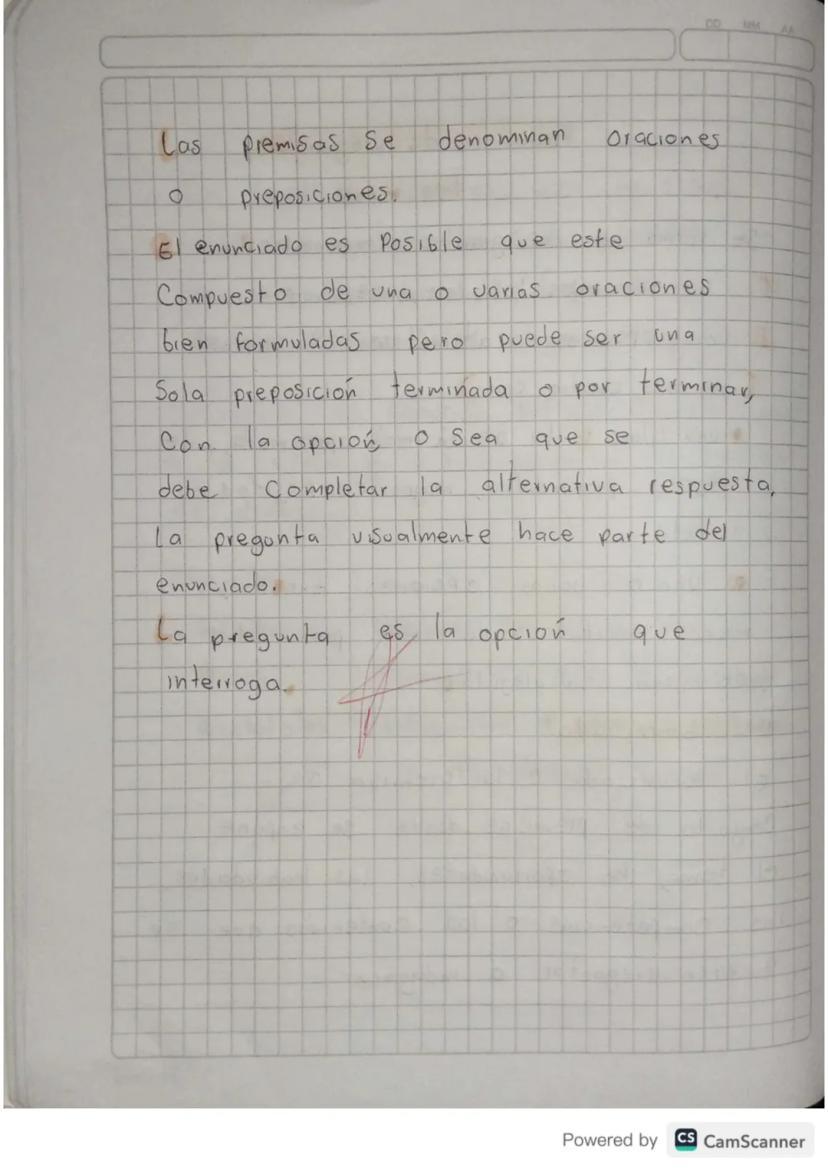 DD MM AA
Las premisas se denominan oraciones
o preposiciones.
El enunciado es Posible que este
Compuesto de una o varias oraciones
bien formuladas pero puede ser una
Sola preposición terminada o por terminar,
Con la opción, o Sea que se
debe Completar la alternativa respuesta,
La pregunta visualmente hace parte del
enunciado.
La pregunta es la opción que
interroga.
Powered by CS CamScanner